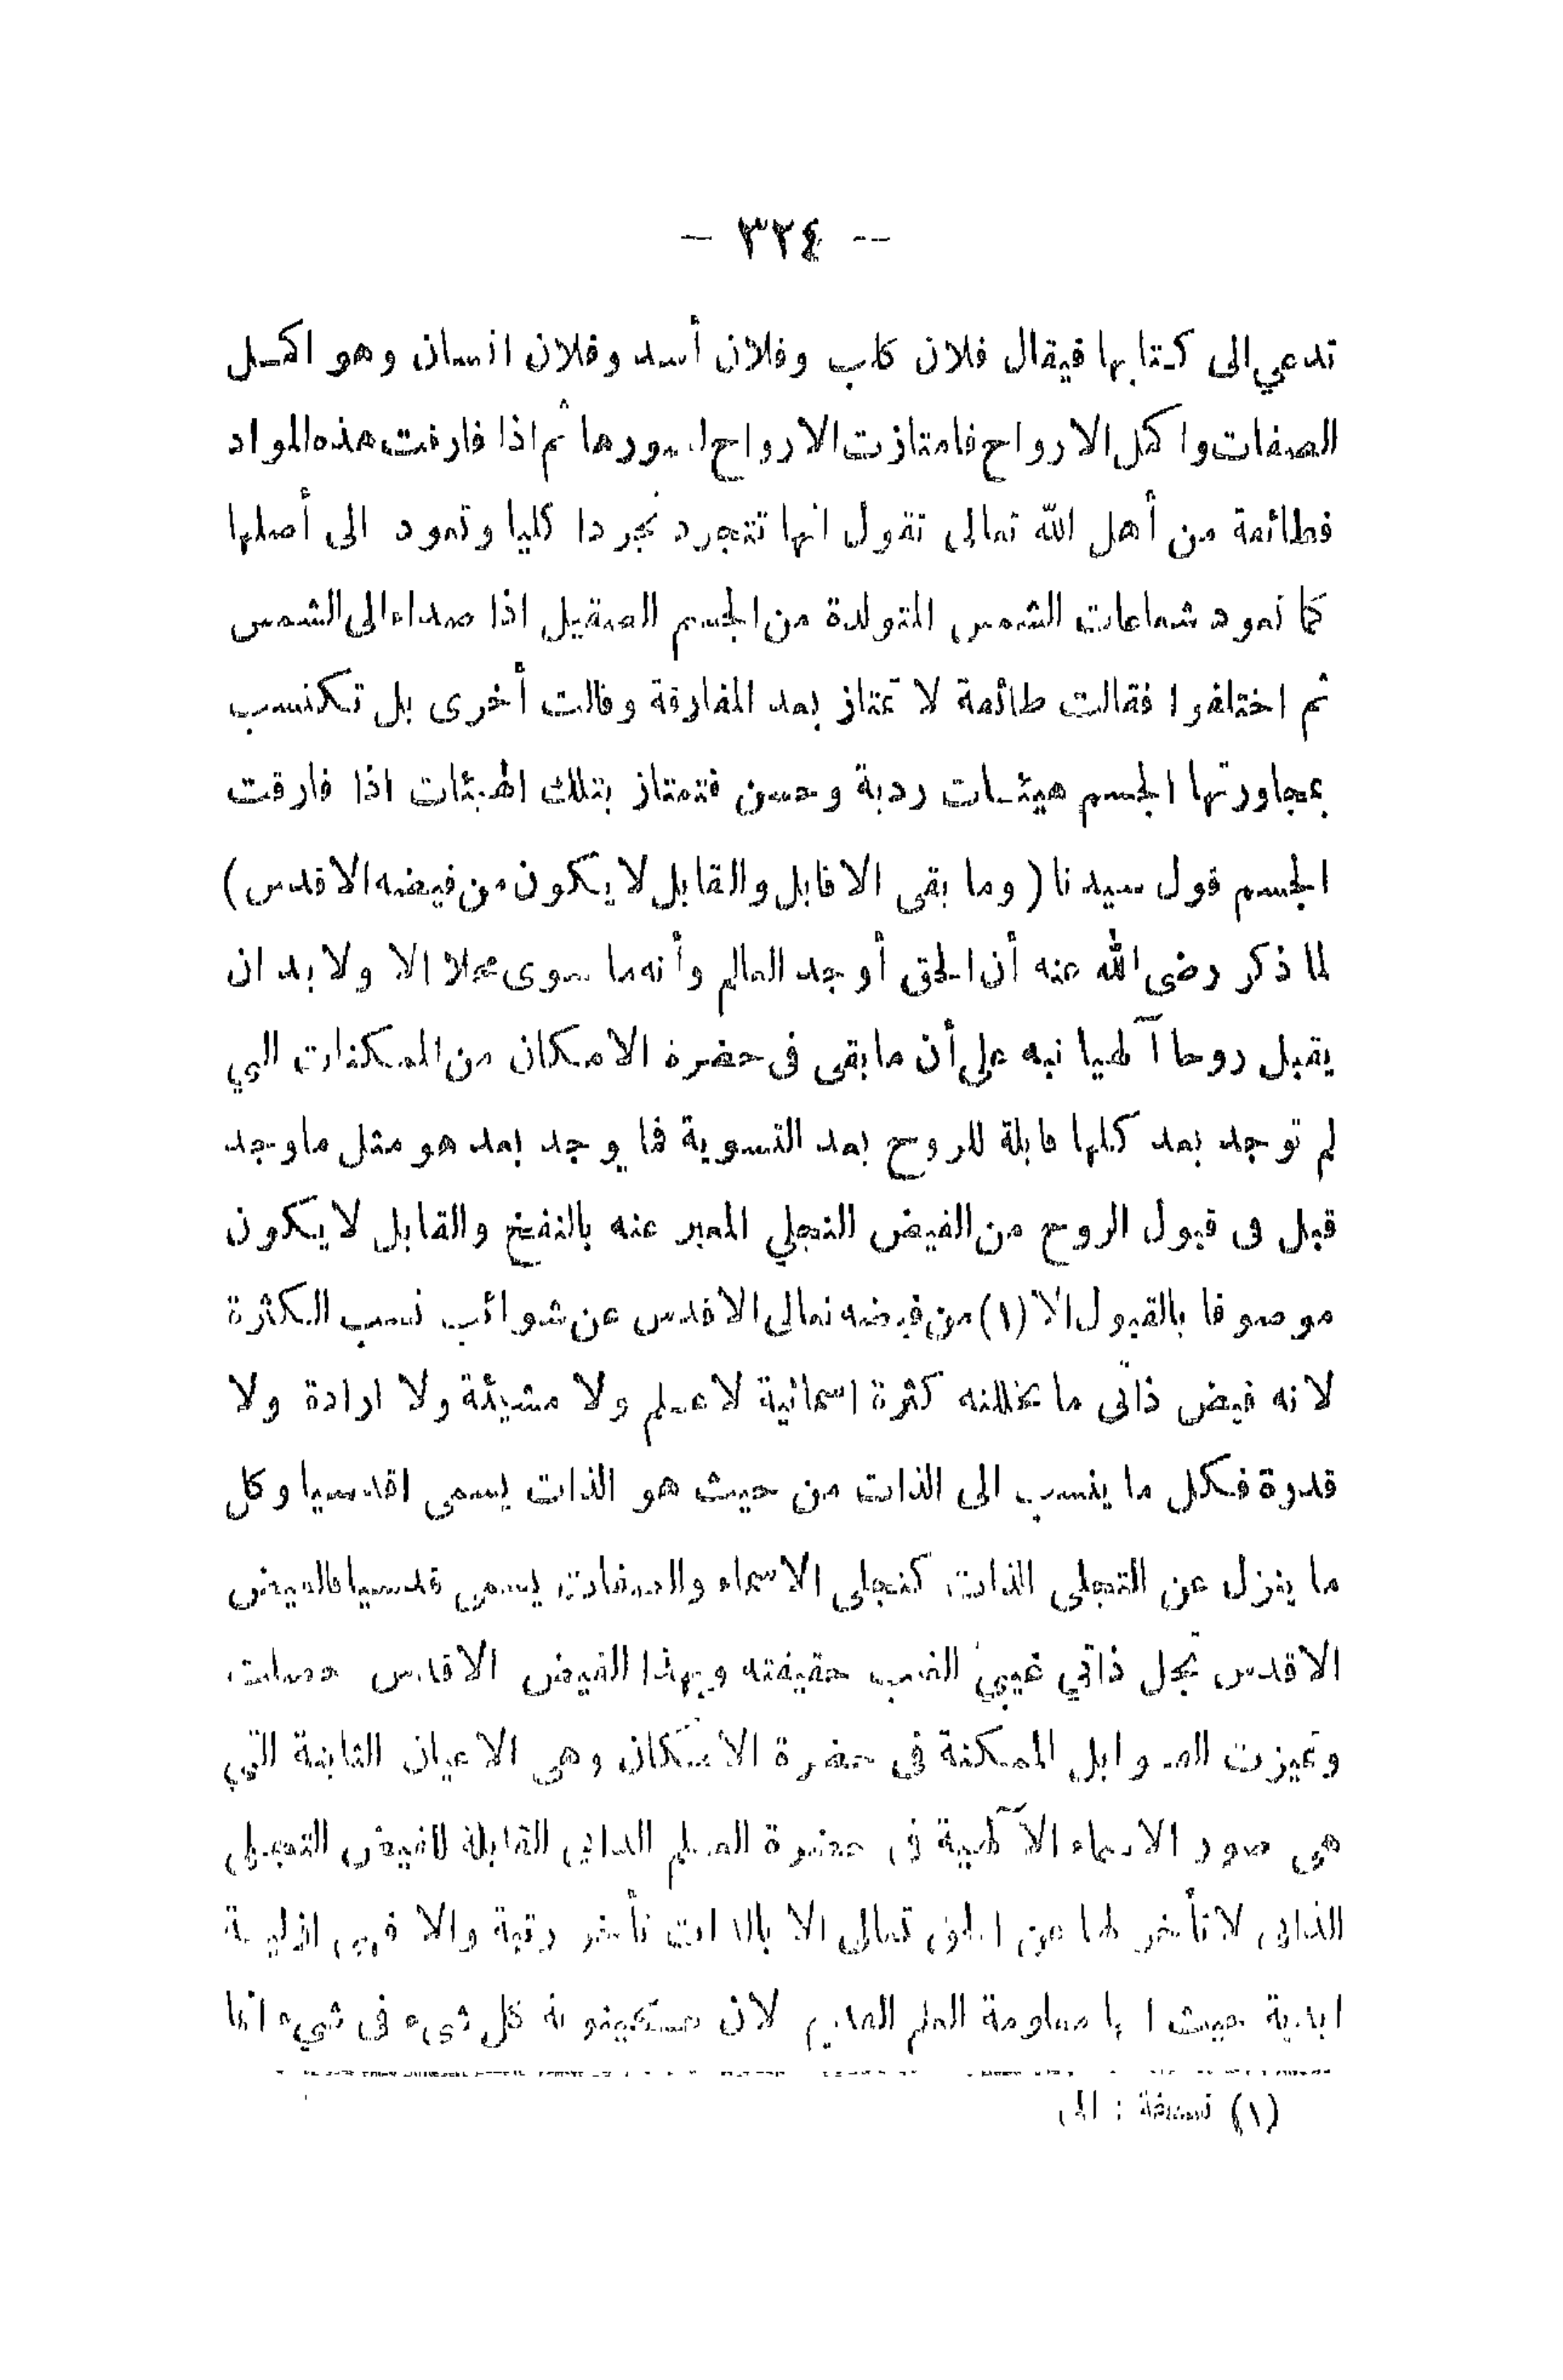 -- ٣٢٤ --
تدعي الى كتابها فيقال فلان كلب وفلان أسد وفلان انسان وهو اكمل
الصفات واكمل الارواح فامتازت الارواح بصورها ثم اذا فارقت هذه المواد
فطائفة من أهل الله تعالى تقول انها تتجرد تجردا كليا وتعود الى أصلها
كما تعود شعاعات الشمس المتولدة من الجسم الصقيل اذا صداء الى الشمس
ثم اختلفوا فقالت طائفة لا تمتاز بعد المفارقة وقالت أخرى بل تكتسب
بمجاورتها الجسم هيئات ردية وحسن فتمتاز بتلك الهيئات اذا فارقت
الجسم قول سيدنا ( وما بقى الا قابل والقابل لا يكون من فيضه الاقدس )
لما ذكر رضى الله عنه أن الحق أوجد العالم وأنه ما سوى محلا الا ولا بد ان
يقبل روحا آلهيا نبه على أن ما بقى فى حضرة الامكان من الممكنات التي
لم توجد بعد كلها قابلة للروح بعد التسوية فما يوجد بعد هو مثل ما وجد
قبل فى قبول الروح من الفيض التجلي المعبر عنه بالنفخ والقابل لا يكون
موصوفا بالقبول الا (١) من فيضه تعالى الاقدس عن شوائب نسب الكثرة
لانه فيض ذاتى ما تخللته كثرة اسمائية لا علم ولا مشيئة ولا ارادة ولا
قدرة فكل ما ينسب الى الذات من حيث هو الذات يسمى اقدسيا وكل
ما ينزل عن التجلى الذات كتجلى الاسماء والصفات يسمى قدسيا فالفيض
الاقدس تجل ذاتي غيبي الغيب حقيقته وبهذا الفيض الاقدس حصلت
وتميزت القوابل الممكنة فى حضرة الامكان وهى الاعيان الثابتة التي
هى صور الاسماء الآلهية فى حضرة العلم الذاتى القابلة للفيض التجلى
الذاتى لا تأخر لها عن الحق تعالى الا بالذات تأخر رتبة والا فهى ازلية
ابدية حيث انها معلومة العلم القديم لان كينونة كل شيء فى شيء انما
(١) نسخة : الى